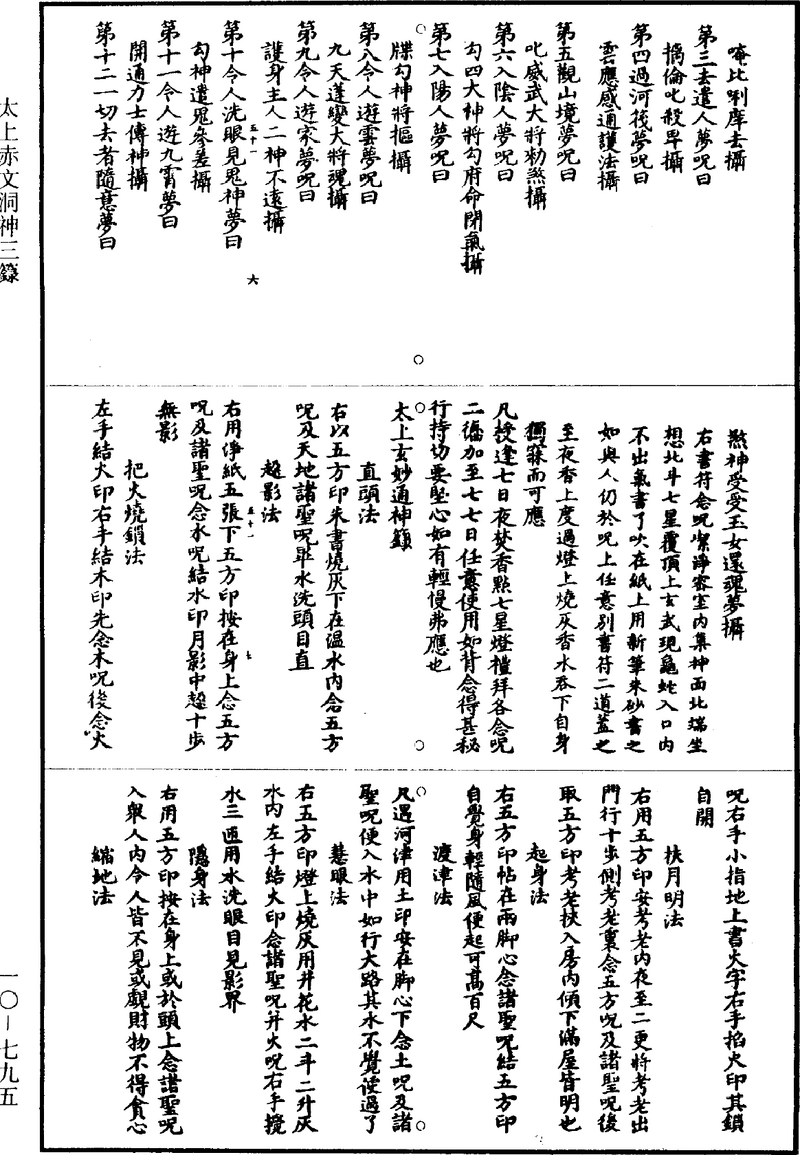 唵比唎庠去攝
第三去遣人夢呪曰
搊倫叱殺卑攝
第四過河筏夢呪曰
雲應感通護法攝
第五觀山境夢呪曰
叱威武大將勑煞攝
第六入陰人夢呪曰
勾四大神將勾府命閉氣攝
第七入陽人夢呪曰
牒勾神將摳攝
第八令人遊雲夢呪曰
九天蓬變大將魂攝
第九令人遊家夢呪曰
護身主人二神不遠攝
五十一 六
第十令人洗眼見鬼神夢曰
勾神遣鬼參差攝
第十一令人遊九霄夢曰
開通力士傳神攝
第十二一切去者隨意夢曰
煞神受受玉女還魂夢攝
右書符念呪潔淨密室內集神面北端坐
想北斗七星覆頂上玄武現龜蛇入口內
不出氣書了吹在紙上用新筆朱砂書之
如與人仍於呪上任意別書符二道蓋之
至夜香上度過燈上燒灰香水吞下自身
獨寐而可應
凡授逢七日夜焚香點七星燈禮拜各念呪
二徧加至七七日任意使用如背念得甚秘
行持切要堅心如有輕慢弗應也
太上玄妙通神籙
直頭法
右以五方印朱書燒灰下在溫水內念五方
呪及天地諸聖呪畢水洗頭目直
趂影法
五十一 七
右用淨紙五張下五方印按在身上念五方
呪及諸聖呪念水呪結水印月影中趂十步
無影
把火燒鎖法
左手結火印右手結木印先念木呪後念火
呪右手小指地上書火字右手掐火印其鎖
自開
扶月明法
右用五方印安考老內夜至二更將考老出
門行十步側考老裏念五方呪及諸聖呪後
取五方印考老挾入房內傾下滿屋皆明也
起身法
右五方印帖在兩脚心念諸聖呪結五方印
自覺身輕隨風便起可高百尺
渡津法
凡遇河津用土印安在脚心下念土呪及諸
聖呪便入水中如行大路其水不覺使過了
慧眼法
右五方印燈上燒灰用井花水二斗二升灰
水內左手結火印念諸聖呪并火呪右手攪
水三匝用水洗眼目見影界
隱身法
右用五方印按在身上或於頭上念諸聖呪
入衆人內令人皆不見或觀財物不得貪心
縮地法
太上赤文洞神三籙
一〇－七九五